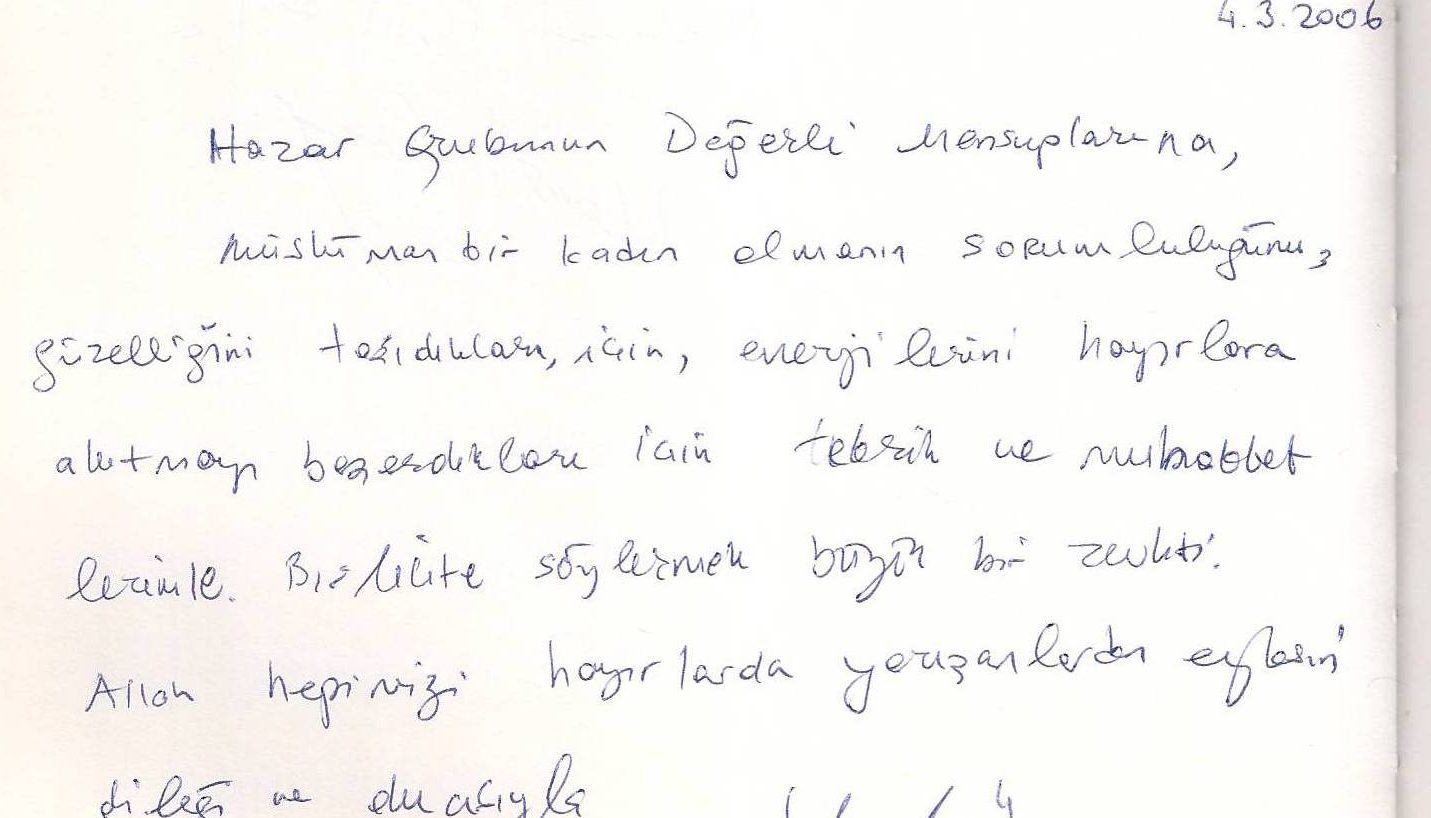 4.3.2006
Hazar Grubunun Değerli Mensuplarına,
Müslüman bir kadın olmanın sorumluluğunu,
güzelliğini taşıdıkları için, enerjilerini hayırlara
akıtmayı başardıkları için tebrik ve muhabbet
lerimle. Birlikte söyleşmek büyük bir zevkti.
Allah hepimizi hayırlarda yarışanlardan eylesin
dileği ve duasıyla